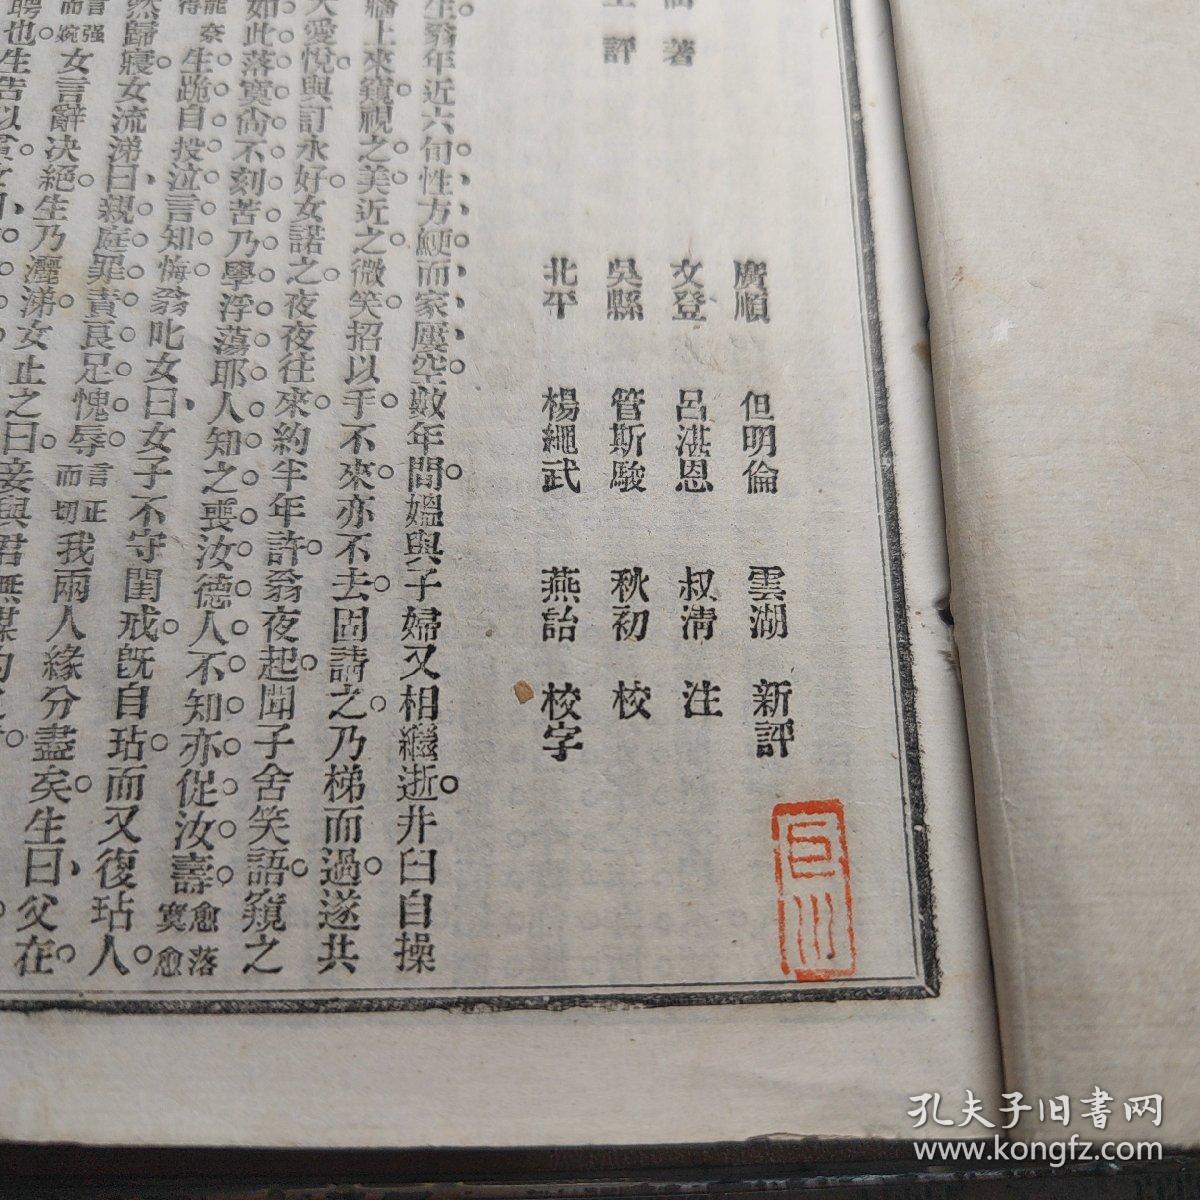 著
評
廣順 但明倫 雲湖 新評
文登 呂湛恩 叔清 注
吳縣 管斯駿 秋初 校
北平 楊繩武 燕詒 校字
生翁年近六旬性方鯁而家屢空數年間媼與子婦又相繼逝井臼自操
牆上來窺視之美近之微笑招以手不來亦不去固請之乃梯而過遂共
大愛悅與訂永好女諾之夜夜往來約半年許翁夜起聞子舍笑語窺之
如此落寞尚不刻苦乃學浮蕩耶人知之喪汝德人不知亦促汝壽愈落寞愈
能奈得生跪自投泣言知悔翁叱女曰女子不守閨戒旣自玷而又復玷人
然歸寢女流涕曰親庭罪責良足愧辱言正而切我兩人緣分盡矣生曰父在
言强而婉女言辭决絕生乃灑涕女止之曰妾與君無媒
聘也生告以
孔夫子旧书网
www.kongfz.com